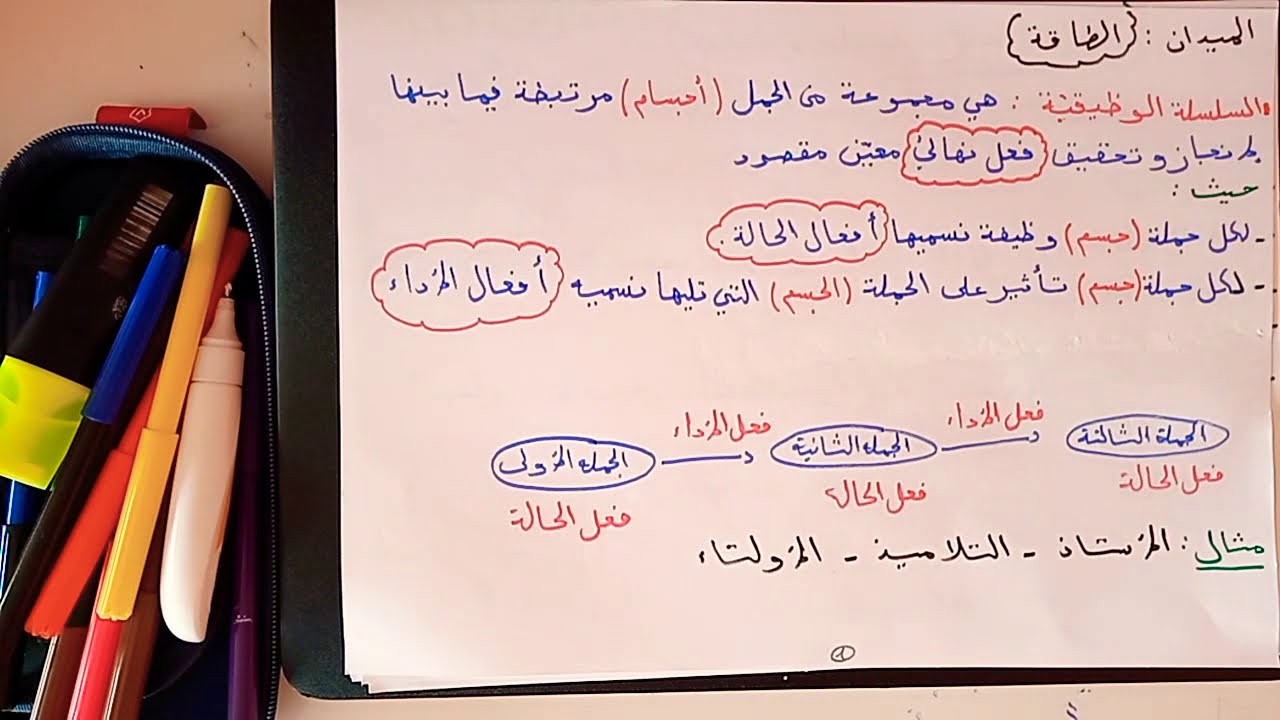 الميدان : (الطاقة)
السلسلة الوظيفيّة : هي مجموعة من الجمل (أجسام) مرتبطة فيما بينها
لإنجاز و تحقيق فعل نهائي معيّن مقصود
حيث :
- لكل جملة (جسم) وظيفة نسميها أفعال الحالة.
- لكل جملة (جسم) تأثير على الجملة (الجسم) التي تليها نسميه أفعال الأداء
الجملة الأولى فعل الأداء الجملة الثانية فعل الأداء الجملة الثالثة
فعل الحالة فعل الحالة فعل الحالة
مثال : الأستاذ - التلاميذ - الأولياء
1